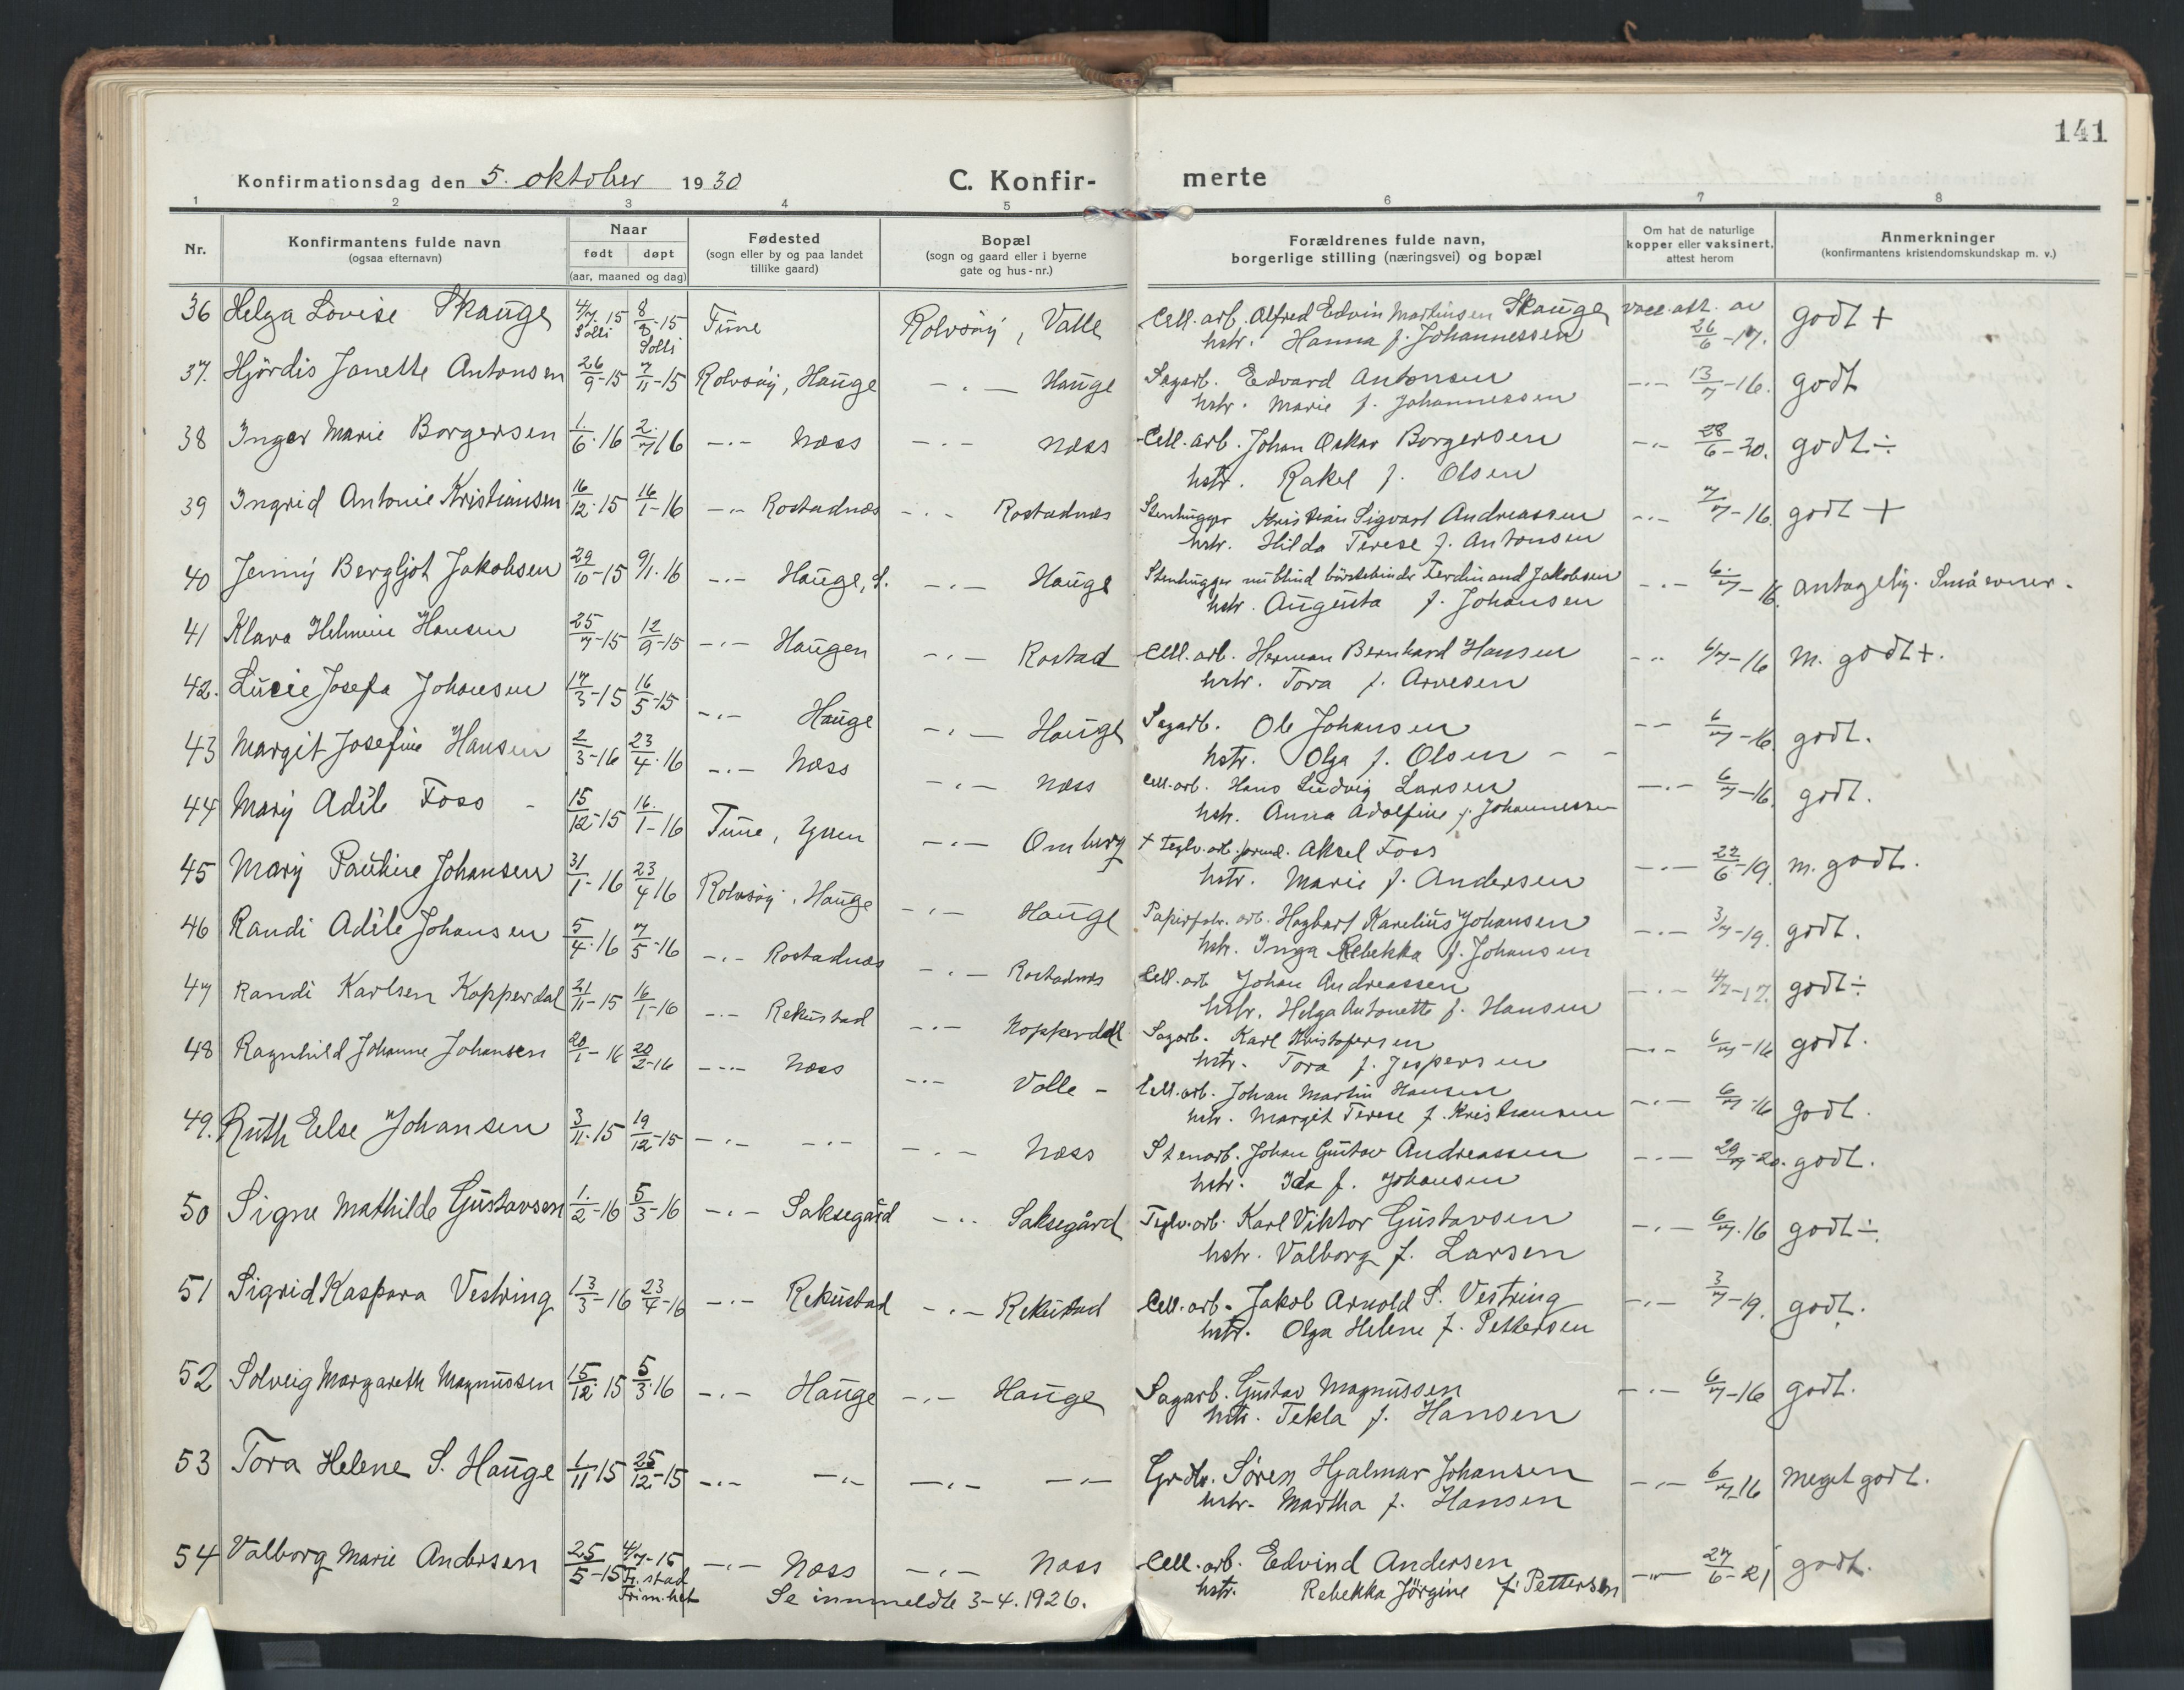 141
Konfirmationsdag den 5. oktober 1930
C. Konfir- merte
1 2 3 4 5 6 7 8
Nr.
Konfirmantens fulde navn
(ogsaa efternavn)
Naar
født døpt
(aar, maaned og dag)
Fødested
(sogn eller by og paa landet
tillike gaard)
Bopæl
(sogn og gaard eller i byerne
gate og hus-nr.)
Forældrenes fulde navn,
borgerlige stilling (næringsvei) og bopæl
Om hat de naturlige
kopper eller vaksinert,
attest herom
Anmerkninger
(konfirmantens kristendomskundskap m. v.)
36 Helga Lovise Skauge 4/7.15 Solli 8/8-15 Solli Tune Rolvsøy, Valle Cell. arb. Alfred Edvin Martinsen Skauge vacc. att. av 26/6-17. godt +
hstr. Hanna f. Johannessen
37. Hjördis Janette Antonsen 26/9-15 7/11-15 Rolvsøy, Hauge -.- Hauge Sagarb. Edvard Antonsen -.- 13/7-16. godt
hstr. Marie f. Johannessen
38 Inger Marie Borgersen 1./6.16 2./7 16 -.- Næss -.- Næss Cell. arb. Johan Oskar Borgersen -.- 28/6-20. godt ÷
hstr. Rakel f. Olsen
39 Ingrid Antonie Kristiansen 16/12.15 16/1-16 -.- Rostadnæs -.- Rostadnæs Stenhugger Kristian Sigvart Andreassen -.- 7/7-16. godt +
hstr. Hilda Terese f. Antonsen
40 Jenny Bergljot Jakobsen 29/10-15 9/1.16 -.- Hauge, S. -.- Hauge Stenhugger nu blind börstebinder Ferdinand Jakobsen -.- 6./7-16. antagelig. Små evner.
hstr. Augusta f. Johansen
41 Klara Helmine Hansen 25/7-15 12/9-15 -.- Haugen -.- Rostad Cell. arb. Herman Bernhard Hansen -.- 6/7-16 M. godt +.
hstr. Tora f. Arvesen
42. Lucie Josefa Johansen 17/3-15 16/5-15 -.- Hauge -.- Hauge Sagarb. Ole Johansen -- 6/7-16 godt.
hstr. Olga f. Olsen - -
43 Margit Josefine Hansen 2/3-16 23/4.16 -.- Næss -.- Næss Cell. arb. Hans Ludvig Larsen -.- 6/7-16. godt.
hstr. Anna Adolfine f. Johannessen
44 Mary Adéle Foss - 15/12-15 16./1-16 Tune, Yven -.- Omberg + Teglv. arb. formd. Aksel Foss -.- 22/6-19. m. godt.
hstr. Marie f. Andersen
45 Mary Pauline Johansen 31/1-16 23/4 16 Rolvsøy, Hauge -.- Hauge Papirfabr. arb. Hagbart Karelius Johansen -.- 3/7-19. godt.
hstr. Inga Rebekka f. Johansen
46 Randi Adéle Johansen 5/4.16 7/5-16 -.- Rostadnæs -.- Rostadnæs Cell. arb Johan Andreassen -.- 4/7-17. godt ÷
hstr. Helga Antonette f. Hansen
47 Randi Karlsen Kopperdal 21/11-15 16/1-16 -.- Rekustad -.- Kopperdal Sagarb. Karl Kristofersen -.- 6/7-16 godt.
hstr. Tora f. Jespersen
48 Ragnhild Johanne Johansen 20/1-16 20/2-16 -.- Næss -.- Valle - Cell. arb. Johan Martin Hansen -.- 6/7-16 godt.
hstr. Margit Terese f. Kristiansen
49. Ruth Else Johansen 3/11.15 19/12-15 -.- -.- -.- Næss Stenarb. Johan Gustav Andreassen -.- 29/7-20. godt.
hstr. Ida f. Johansen
50 Signe Mathilde Gustavsen 1./2-16 5/3-16 -.- Saksegård -.- Saksegård Teglv. arb. Karl Viktor Gustavsen -.- 6/7.16 godt ÷.
hstr. Valborg f. Larsen
51 Sigrid Kaspara Vestring 13/3-16 23/4-16 -.- Rekustad -.- Rekustad Cell. arb. Jakob Arnold S. Vestring -.- 3/7-19. godt.
hstr. Olga Helene f. Pettersen
52 Solveig Margareth Magnussen 15/12.15 5/3.16 -.- Hauge -.- Hauge Sagarb. Gustav Magnussen -.- 6/7-16 godt.
hstr. Tekla f. Hansen
53 Tora Helene S. Hauge 1/11 15 25/12-15 -.- -.- -.- -.- Grdbr. Søren Hjalmar Johansen -.- 6/7-16 Meget godt.
hstr. Martha f. Hansen
54 Valborg Marie Andersen 25/5-15 4/7-15 Fr. stad Frim.het -.- Næss -.- Næss Cell. arb. Edvind Andersen -.- 27/6-21 godt.
Se innmeldte 3-4.1926. hstr. Rebekka Jörgine f. Pettersen